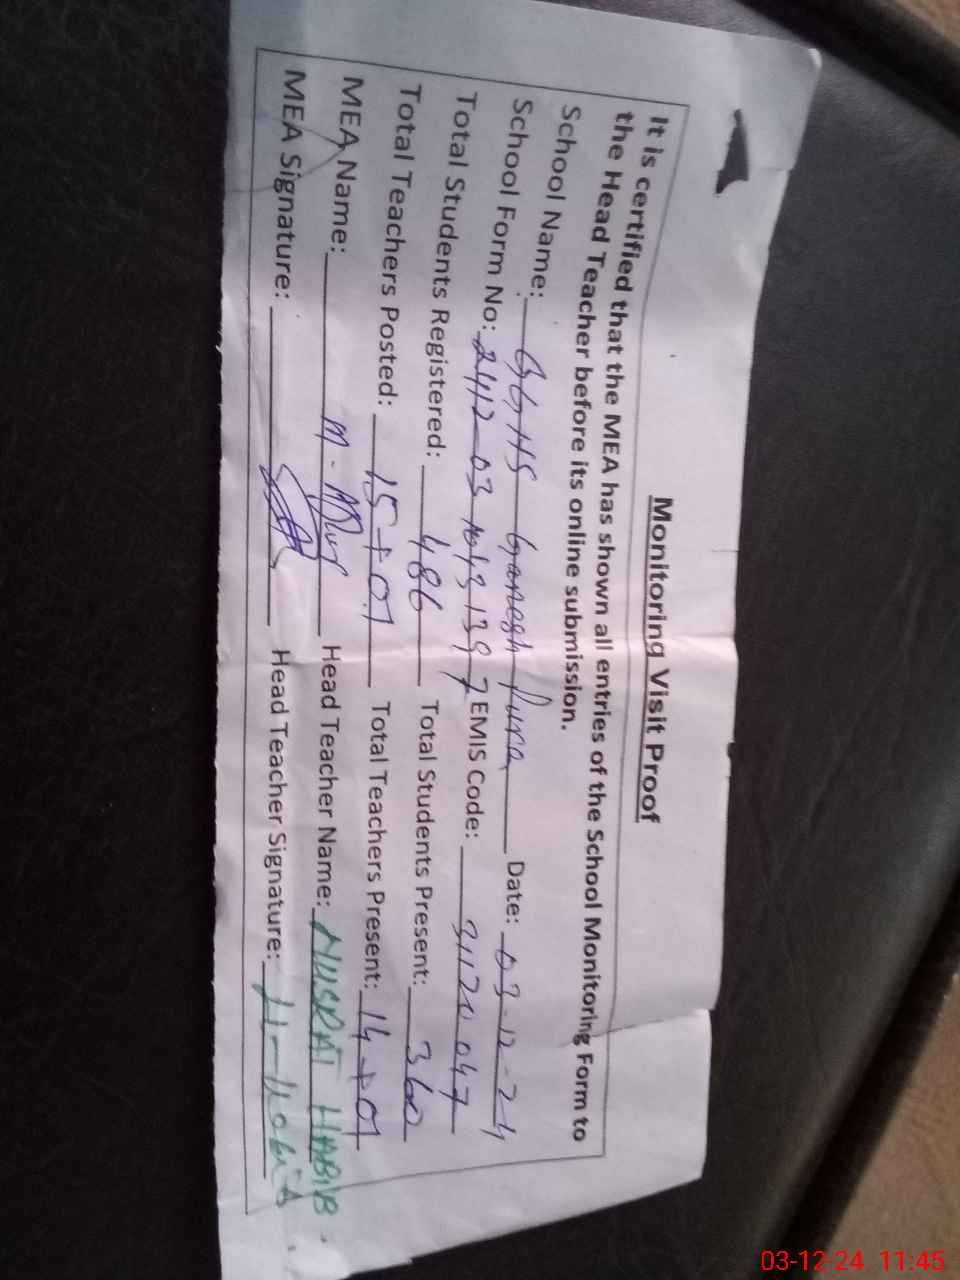 Monitoring Visit Proof
It is certified that the MEA has shown all entries of the School Monitoring Form to
the Head Teacher before its online submission.
School Name: GGHS Ganesh Pura Date: 03-12-24
School Form No: 2412-03 EMIS Code: 31120047
Total Students Registered: 486 Total Students Present: 360
Total Teachers Posted: 15+01 Total Teachers Present: 14+01
MEA Name: M. Head Teacher Name: NUSRAT HABIB
MEA Signature: Head Teacher Signature:
03-12-24 11:45